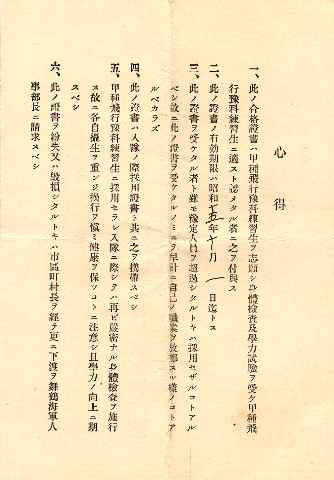 心得
一、此ノ合格證書ハ甲種飛行豫科練習生ヲ志願シ身體檢査及學力試驗ヲ受ケ甲種飛
行豫科練習生ニ適スト認メタル者ニ之ヲ付與ス
二、此ノ證書ノ有効期限ハ昭和 年十月一日迄トス
三、此ノ證書ヲ受ケタル者ト雖モ豫定人員ヲ超過シタルトキハ採用セザルコトアル
ベシ故ニ此ノ證書ヲ受ケタルノミヲ以テ早計ニ自己ノ職業ヲ放擲スル樣ノコトア
ルベカラズ
四、此ノ證書ハ入隊ノ際採用證書ト共ニ之ヲ携帶スベシ
五、甲種飛行豫科練習生ニ採用セラレ入隊ニ際シテハ再ビ嚴密ナル身體檢査ヲ施行
ス故ニ各自攝生ヲ重ンジ操行ヲ愼ミ健康ヲ保ツコトニ注意シ且學力ノ向上ニ期
スベシ
六、此ノ證書ヲ紛失又ハ毀損シタルトキハ市區町村長ヲ經テ更ニ下渡ヲ舞鶴海軍人
事部長ニ請求スベシ